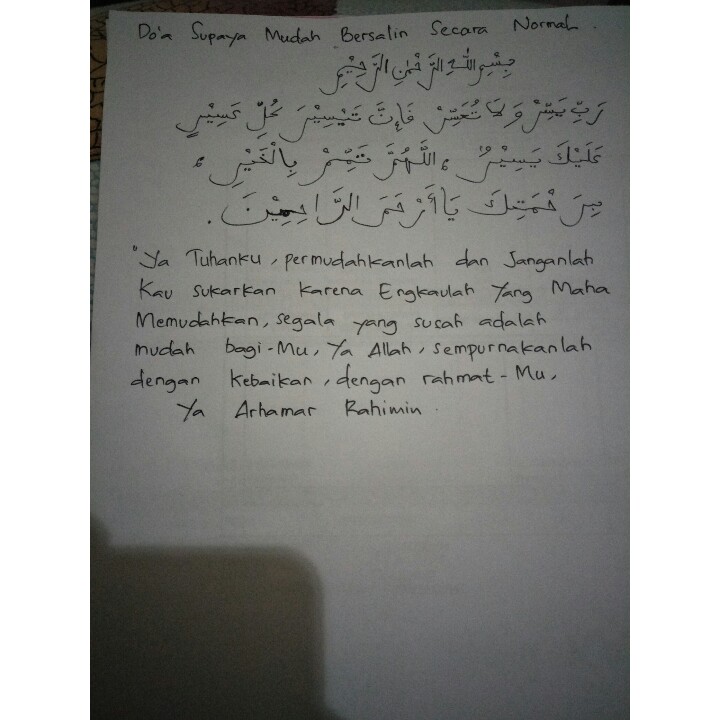 Do'a Supaya Mudah Bersalin Secara Normal.
بِسْمِ اللهِ الرَّحْمٰنِ الرَّحِيْمِ
رَبِّ يَسِّرْ وَلَا تُعَسِّرْ فَإِنَّ تَيْسِيْرَ كُلِّ عَسِيْرٍ
عَلَيْكَ يَسِيْرٌ، اَللّٰهُمَّ تَمِّمْ بِالْخَيْرِ،
بِرَحْمَتِكَ يَا أَرْحَمَ الرَّاحِمِيْنَ.
"Ya Tuhanku, permudahkanlah dan Janganlah
Kau sukarkan karena Engkaulah Yang Maha
Memudahkan, segala yang susah adalah
mudah bagi-Mu, Ya Allah, sempurnakanlah
dengan kebaikan, dengan rahmat-Mu,
Ya Arhamar Rahimin.